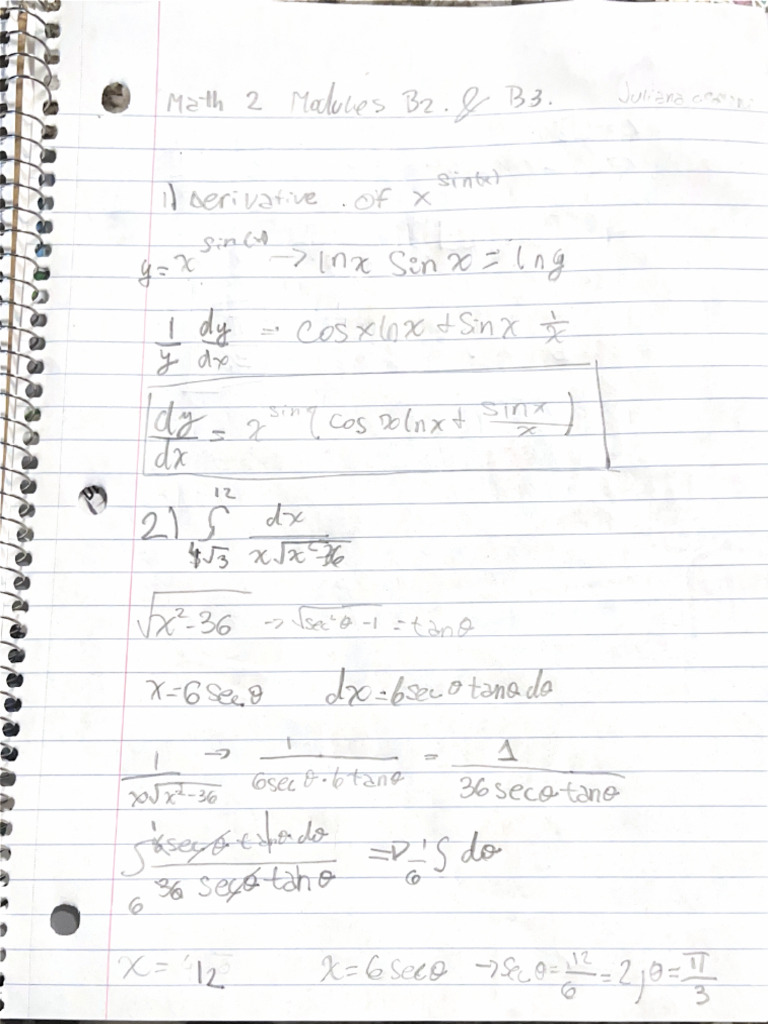 Math 2 Modules B2. & B3. Juliana
1) Derivative of x^sin(x)
y = x^sin(x) → lnx sin x = ln y
1/y dy/dx = cos x ln x + sin x 1/x
dy/dx = x^sin (cos x ln x + sin x / x)
2) ∫_{4√3}^{12} dx / x√x²-36
√x²-36 → √sec²θ -1 = tanθ
x = 6 sec θ dx = 6 sec θ tanθ dθ
1 / x√x²-36 → 1 / 6secθ · 6 tanθ = 1 / 36 secθ tanθ
∫ 6 secθ tanθ dθ / 36 secθ tanθ ⇒ 1/6 ∫ dθ
x = 12 x = 6 secθ → secθ = 12/6 = 2, θ = π/3